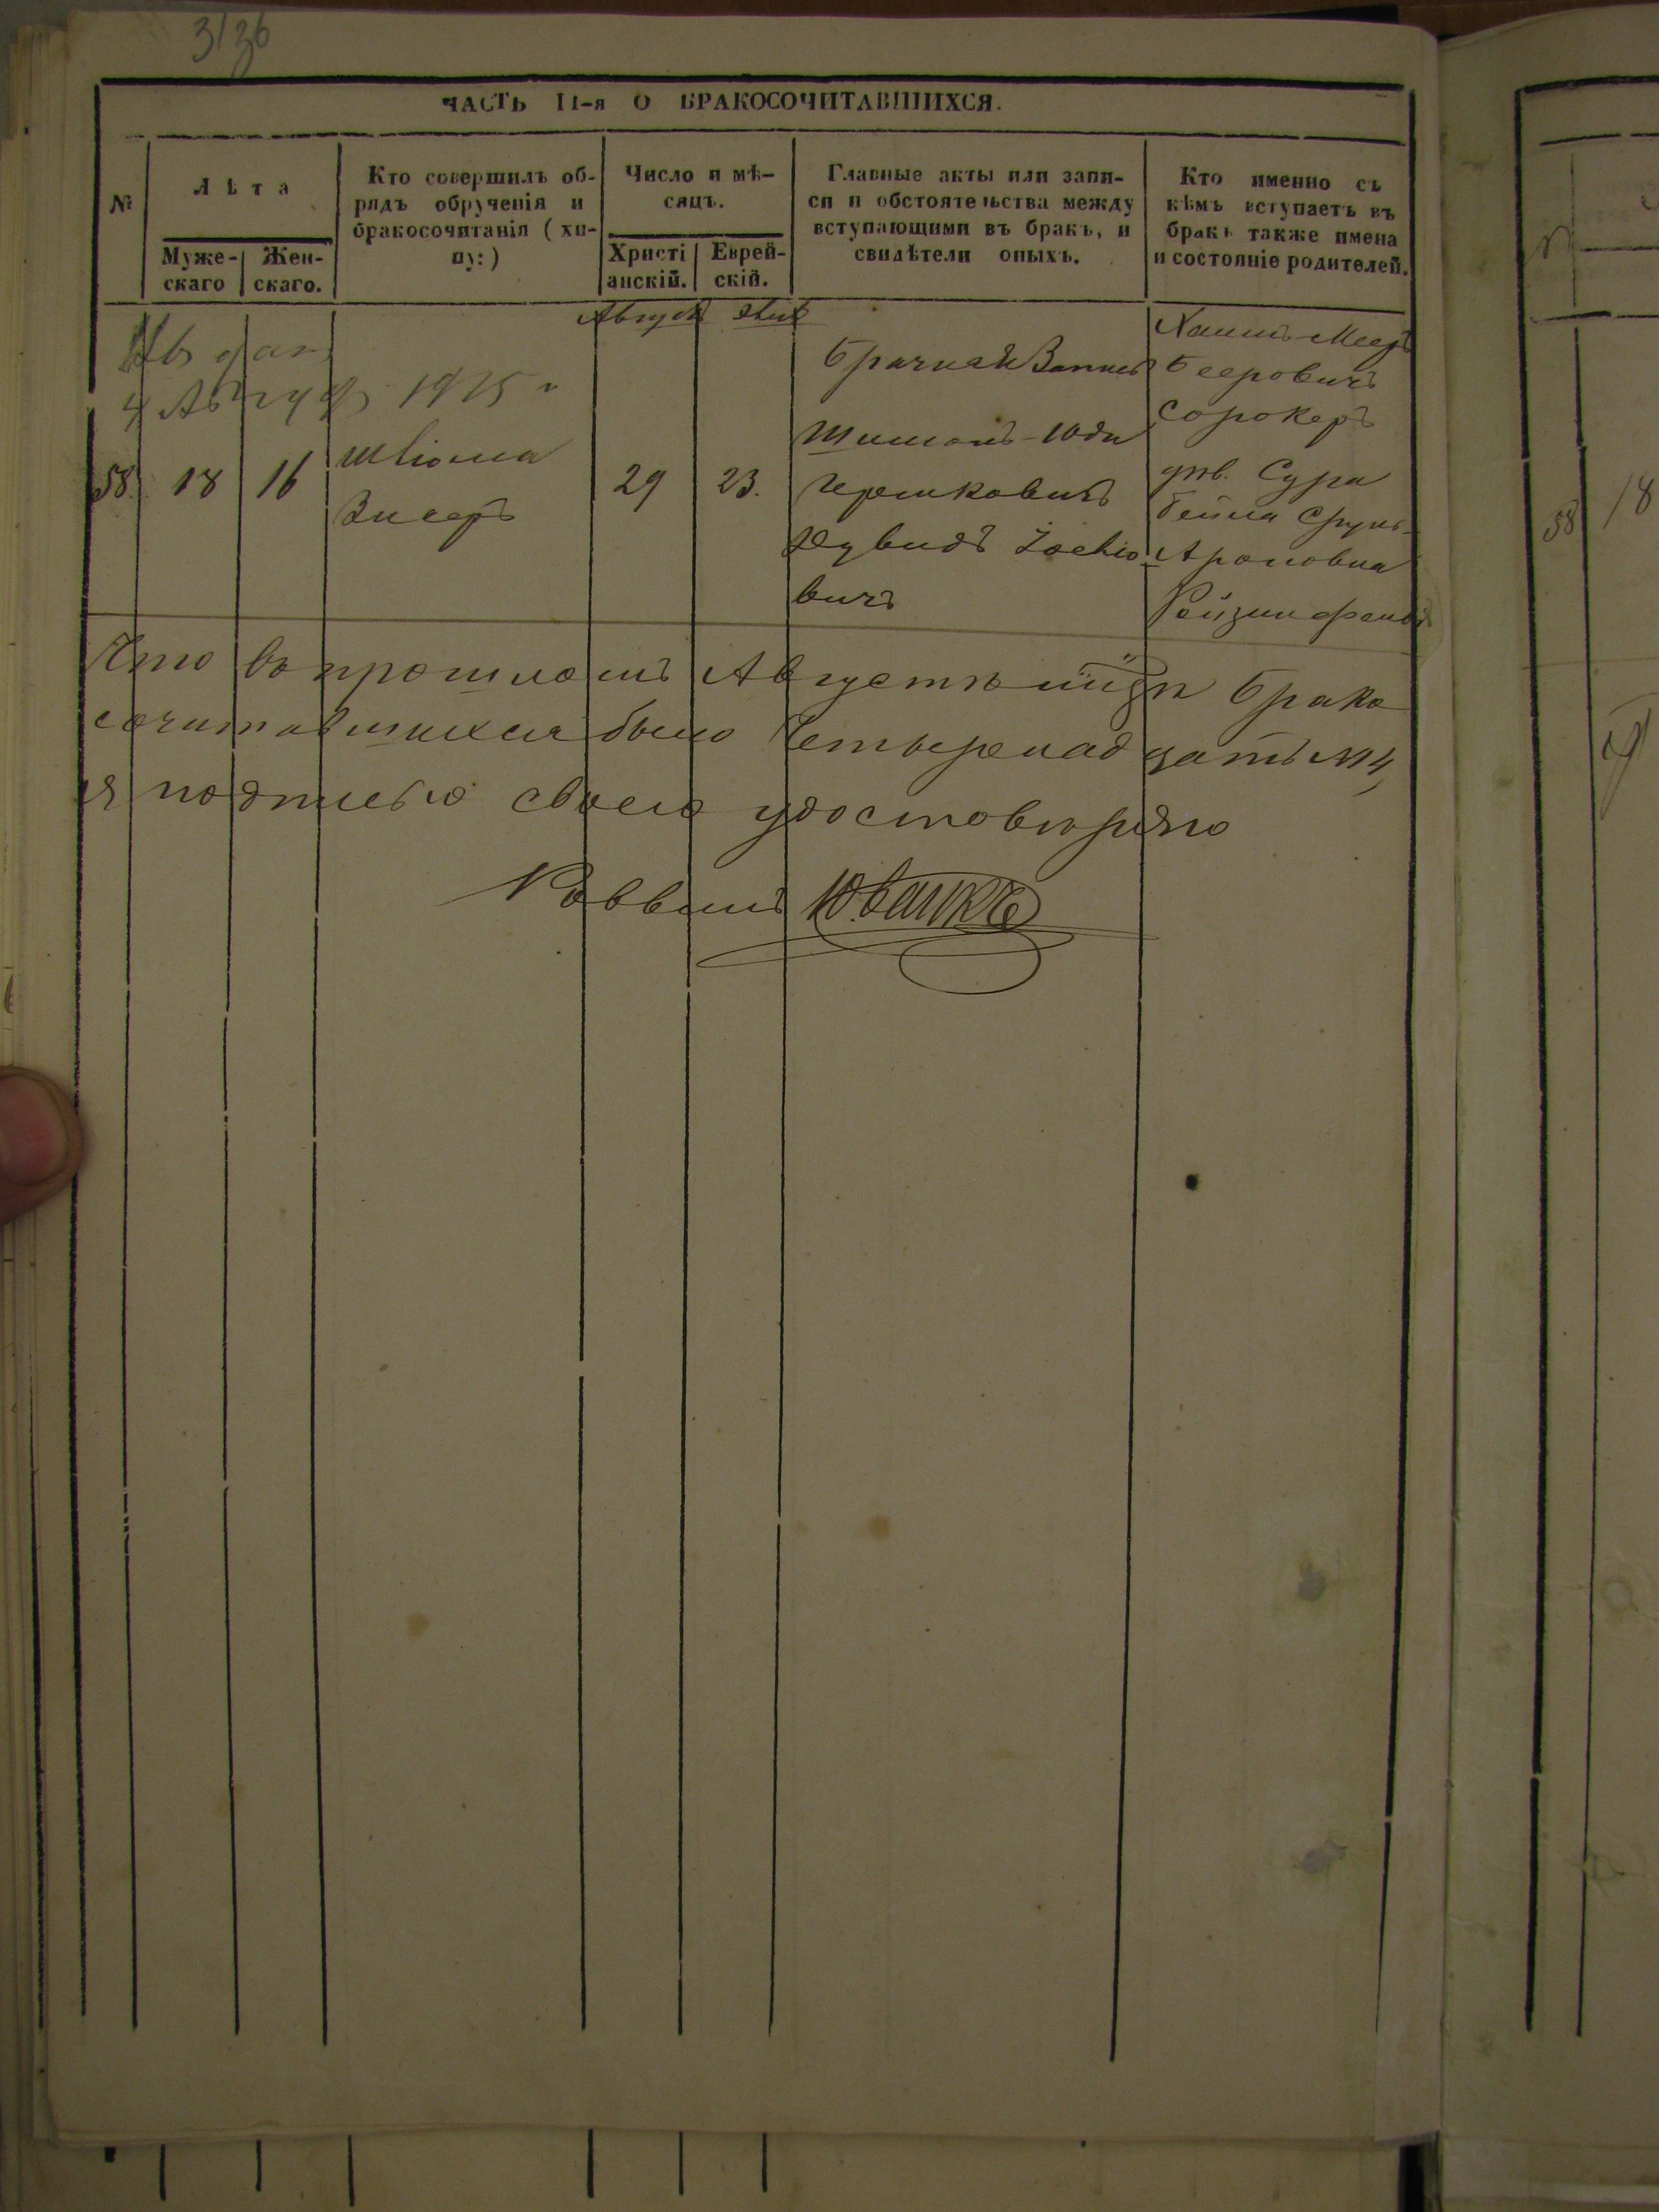 3136
ЧАСТЬ II-я О БРАКОСОЧИТАВШИХСЯ.
№
Лѣта
Муже-
скаго
Жен-
скаго.
Кто совершилъ об-
рядъ обрученія и
бракосочитанія (ху-
пу:)
Число и мѣ-
сяцъ.
Христі
анскій.
Еврей-
скій.
Главные акты или запи-
си и обстоятельства между
вступающими въ бракъ, и
свидѣтели оныхъ.
Кто именно съ
кѣмъ вступаетъ въ
бракъ также имена
и состояніе родителей.
4 Август 1915 г
58.
18
16
Шліома
Висеръ
Августъ
29
23.
Брачная Запись
Шимонъ-Юди
Гершковичъ
Хаимъ-Меерь
Бееровичъ
Сорокеръ
дѣв. Сура
Бейла
Ароновна
Что въ прошломъ Августѣ мцѣ брако
сочитавшихся было Четырнадцать №14
я подписью своею удостовѣряю
Раввинъ
58
18